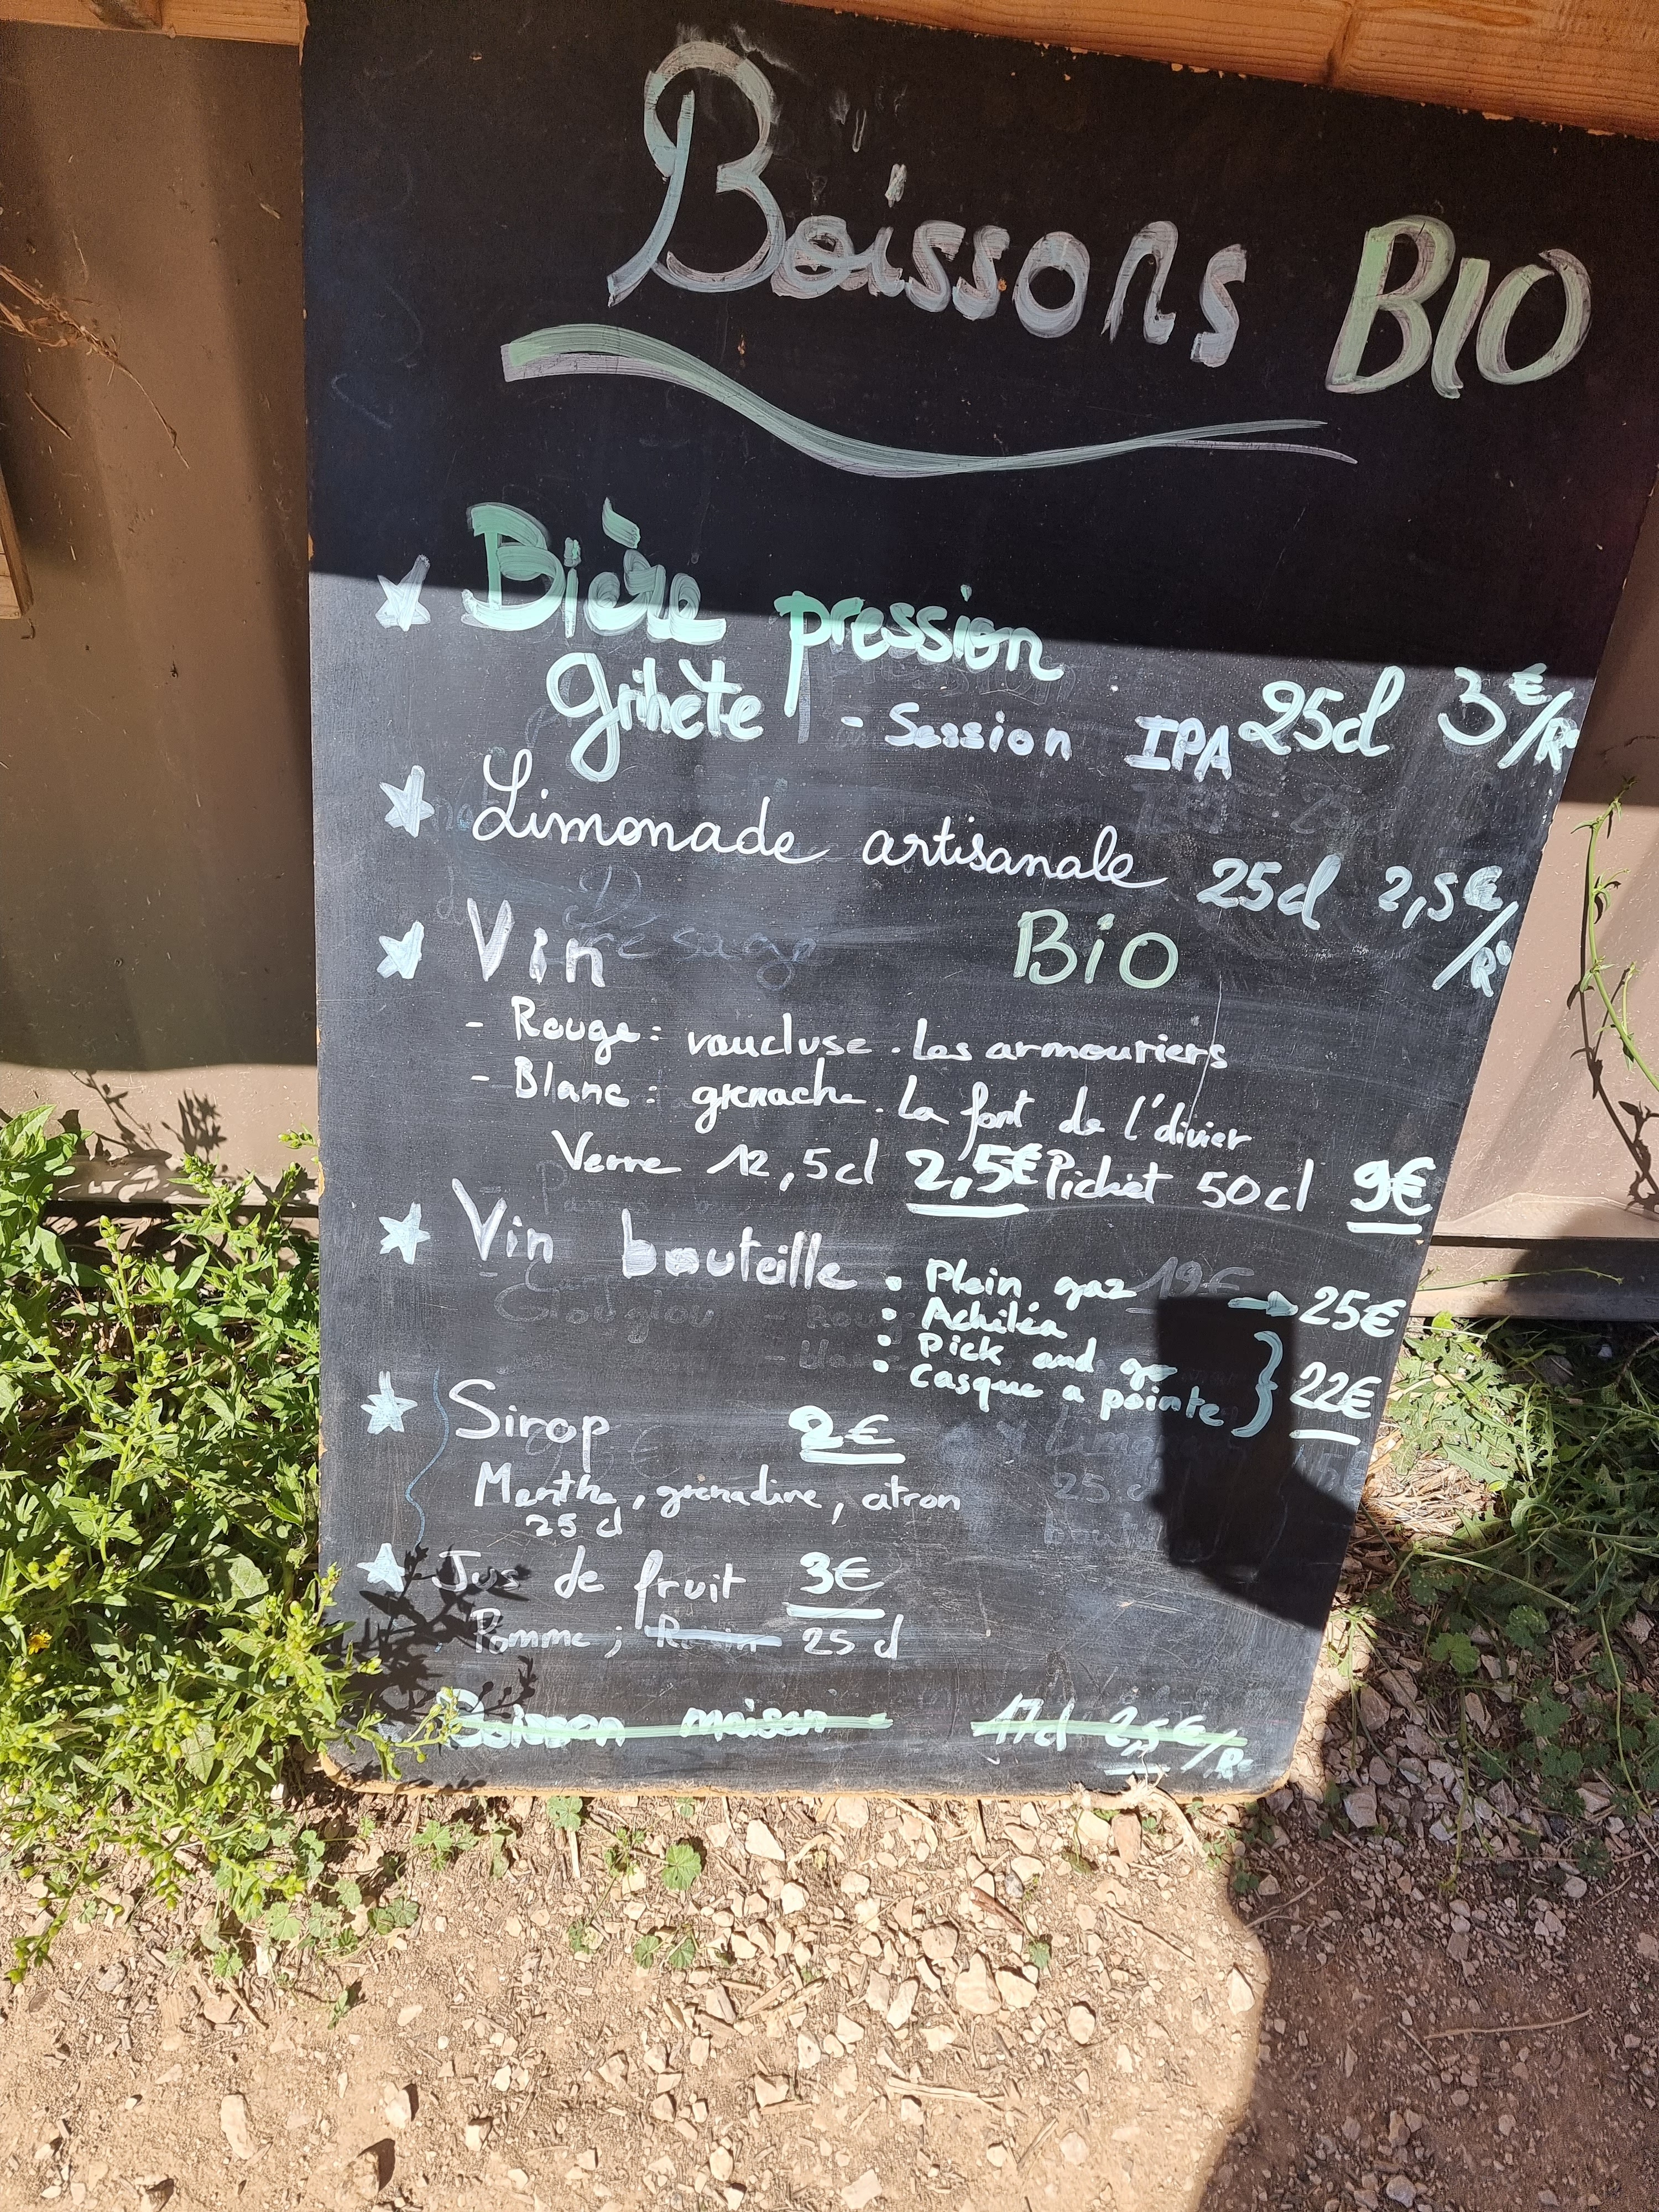 Boissons BIO
Bière pression
grihète - Session IPA 25cl 3€/R
Limonade artisanale 25cl 2,5€/R
Vin BiO
- Rouge : vaucluse . Les armouriers
- Blanc : grenache . La font de l'divier
Verre 12,5cl 2,5€ Pichet 50cl 9€
Vin bouteille
• Plein gaz 19€ → 25€
• Achiléa
• Pick and go
• Casque a pointe } 22€
Sirop 2€
Menthe, grenadine, citron
25 cl
Jus de fruit 3€
Pomme ; Raisin 25 cl
Boisson maison 17cl 2,5€/R